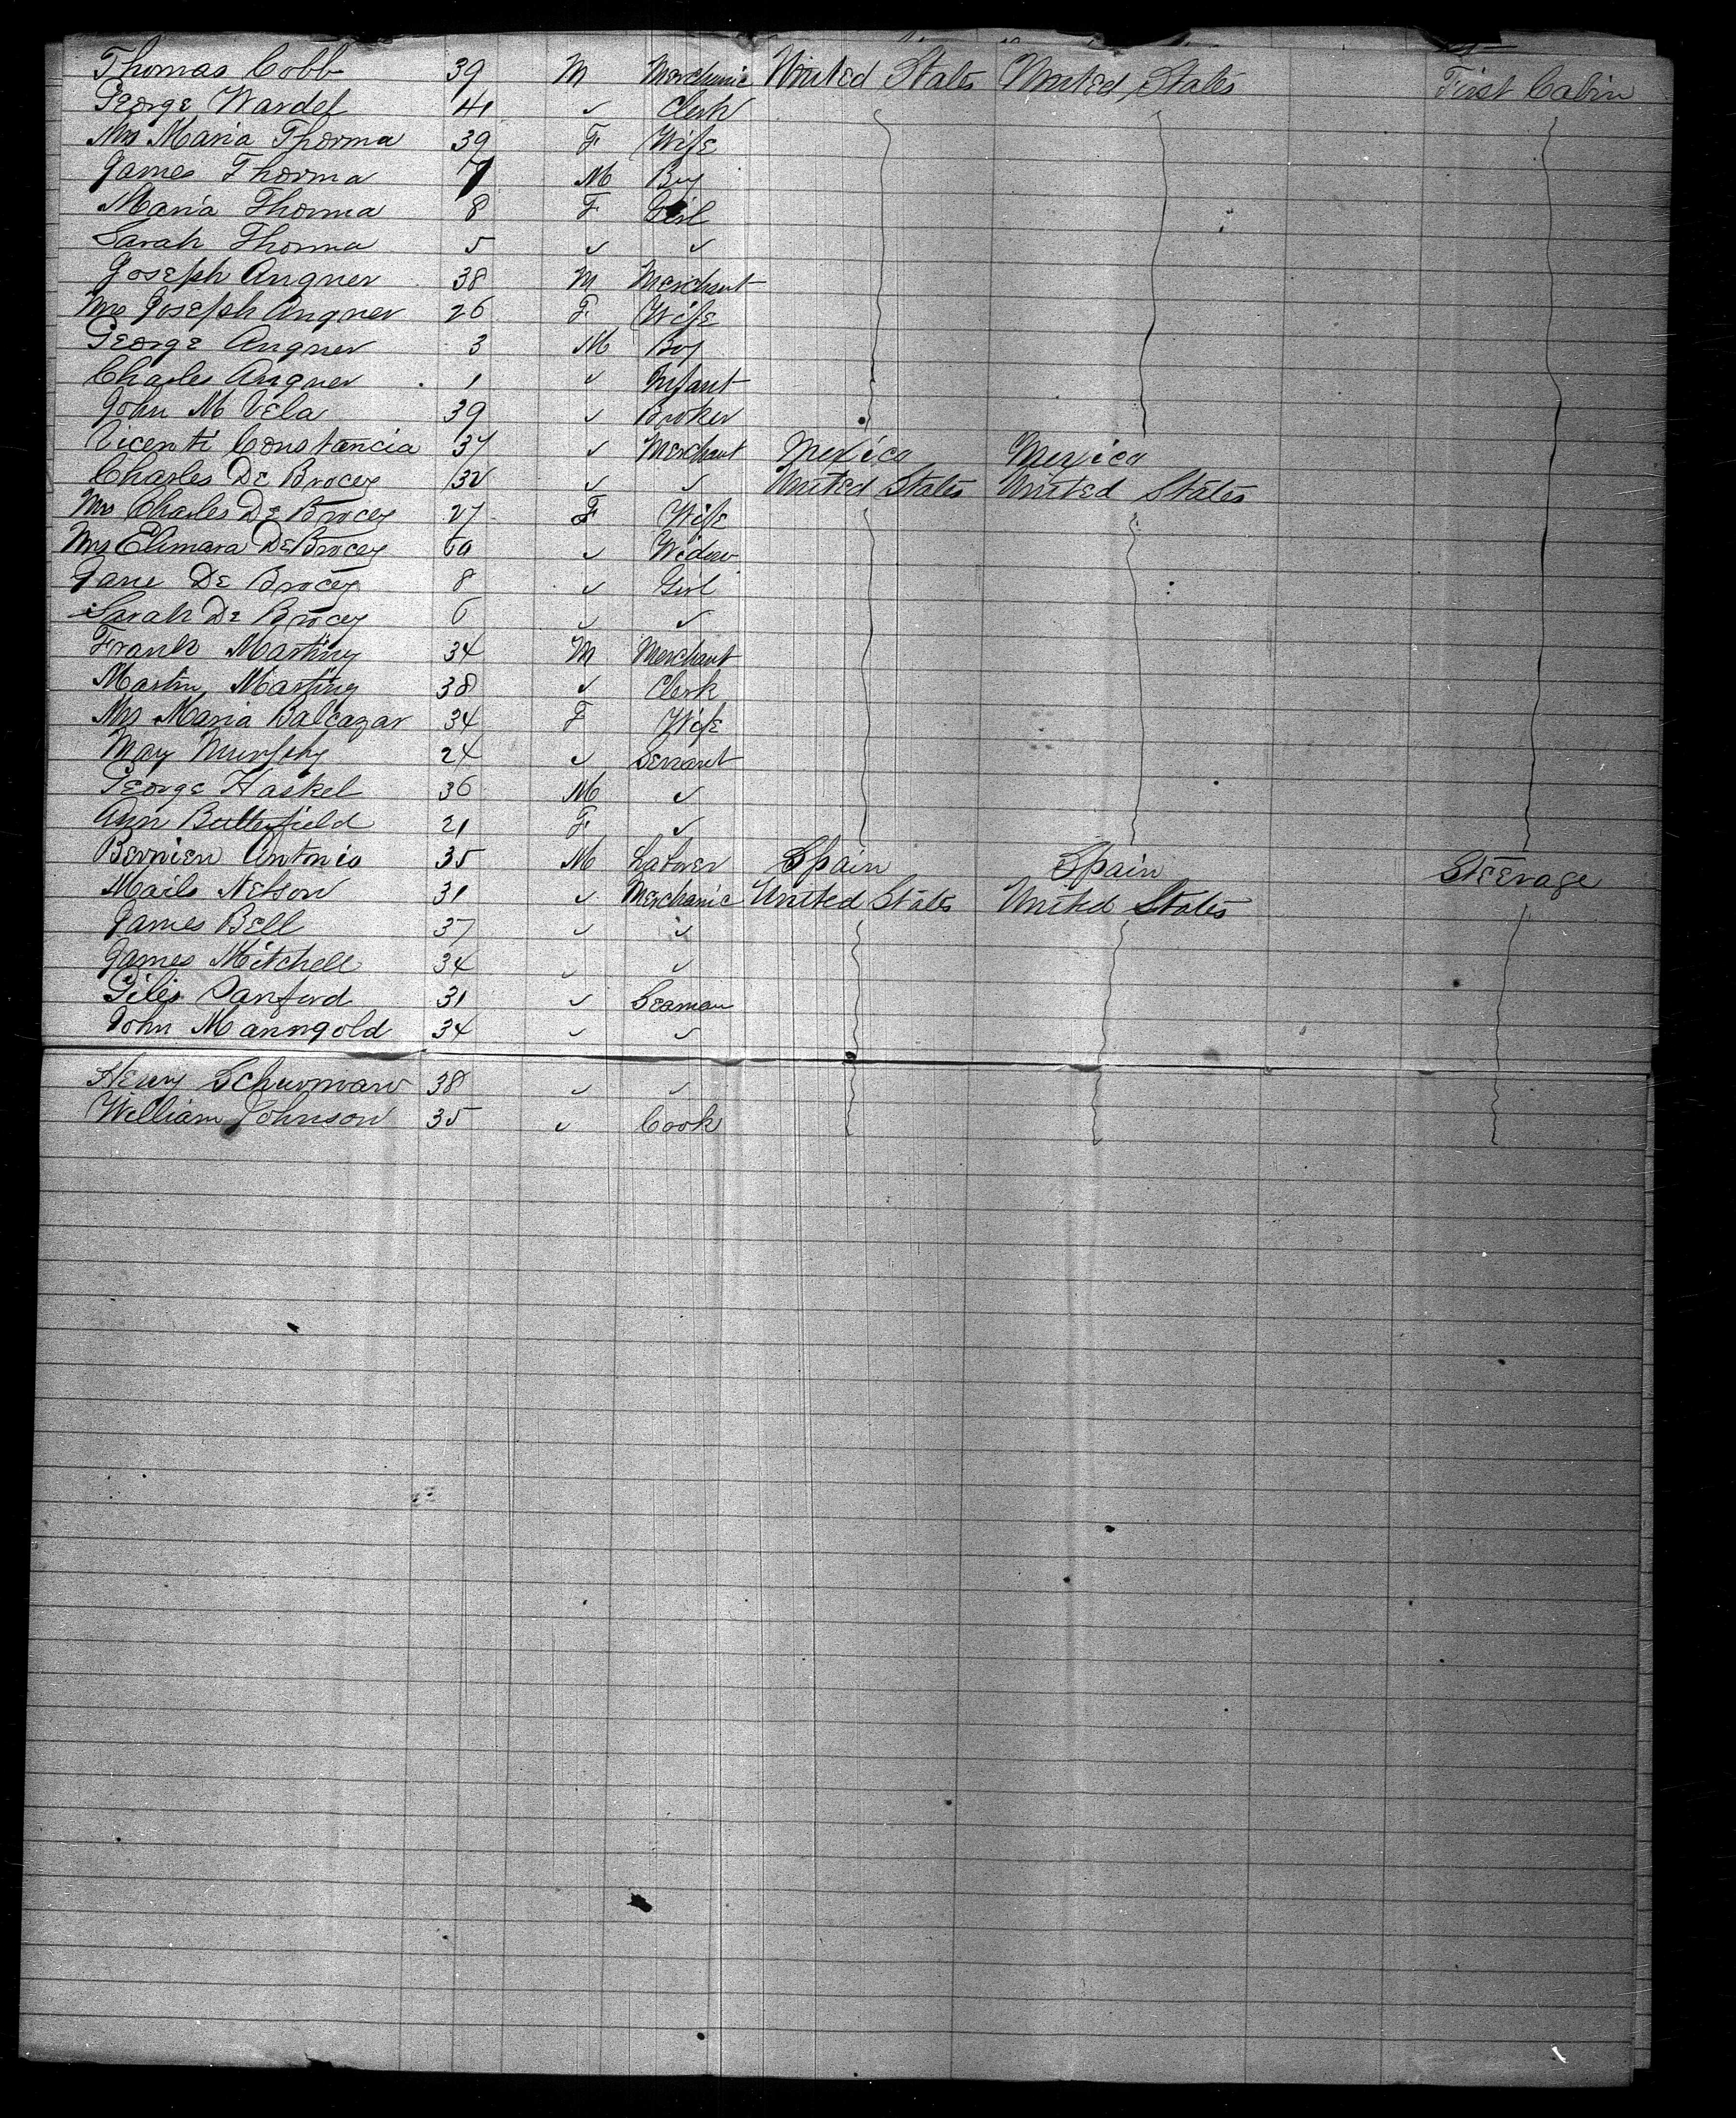 Thomas Cobb 39 M Merchanic United States United States First Cabin
George Wardel 41 ✓ Clerk
Mrs Maria Thorma 39 F Wife
James Thorma 7 M Boy
Maria Thorma 8 F Girl
Sarah Thorma 5 ✓ ✓
Joseph Angner 38 M Merchant
Mrs Joseph Angner 26 F Wife
George Angner 3 M Boy
Charles Angner 1 ✓ Infant
John M Vela 39 ✓ Broker
Vicenti Constancia 37 ✓ Merchant Mexico Mexico
Charles De Brocey 32 ✓ ✓ United States United States
Mrs Charles De Brocey 27 F Wife
Mrs Elimara De Brocey 60 ✓ Widow
Jane De Brocey 8 ✓ Girl
Sarah De Brocey 6 ✓ ✓
Frank Martiny 34 M Merchant
Martin Martiny 38 ✓ Clerk
Mrs Maria Balcazar 34 F Wife
Mary Murphy 24 ✓ Servant
George Haskel 36 M ✓
Ann Butterfield 21 F ✓
Bernien Antonio 35 M Laborer Spain Spain Steerage
Mails Nelson 31 ✓ Merchanic United States United States
James Bell 37 ✓ ✓
James Mitchell 34 ✓ ✓
Giles Sanford 31 ✓ Seaman
John Manngold 34 ✓ ✓
Henry Schurmann 38 ✓ ✓
William Johnson 35 ✓ Cook